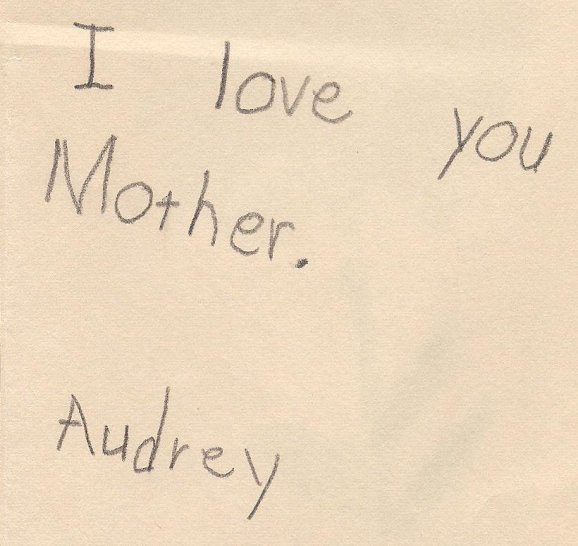 I love you
Mother.
Audrey